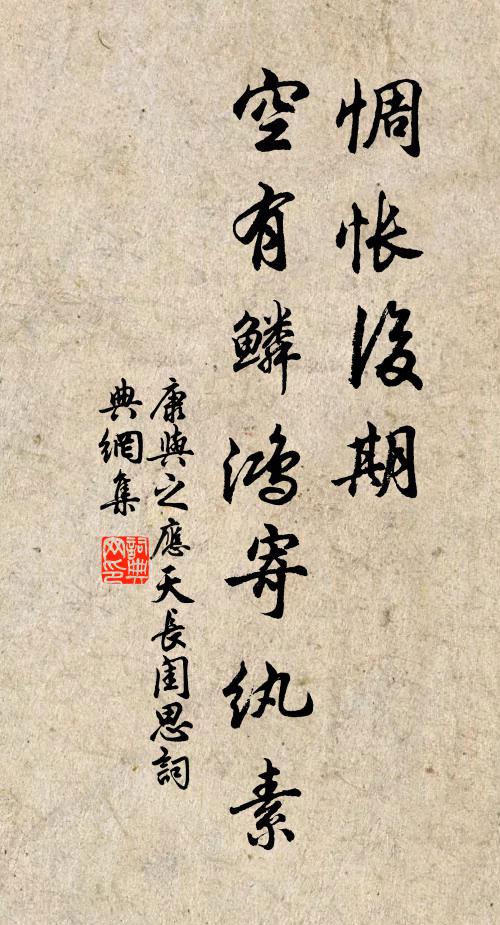 惆悵後期
空有鱗鴻寄紈素
康與之應天長閨思詞
典網集
詞典網印